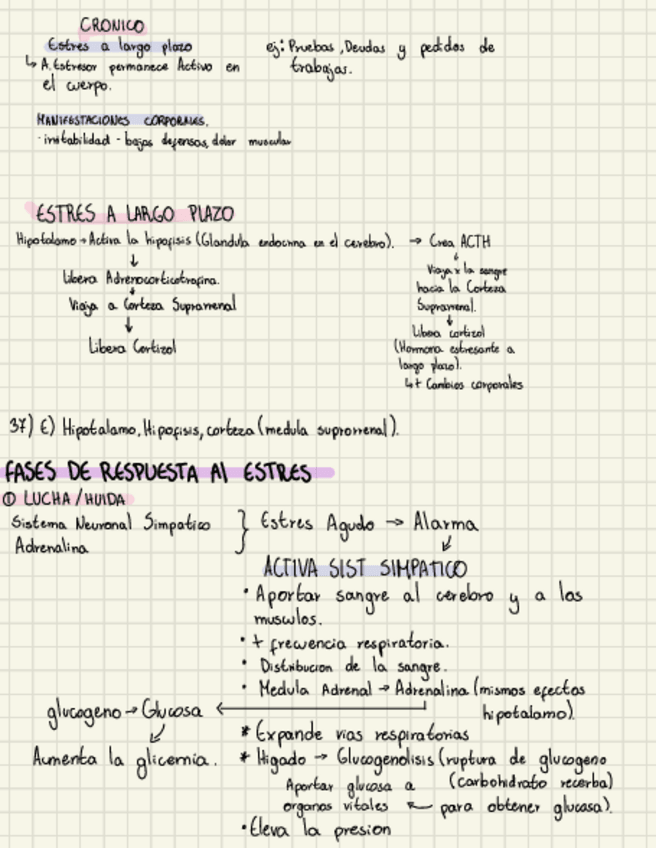 CRONICO
Estres a largo plazo
↳ A. Estresor permanece Activo en
el cuerpo.
ej: Pruebas, Deudas y pedidos de
trabajas.
MANIFESTACIONES CORPORALES.
· irritabilidad - bajas defensas, dolor muscular
ESTRES A LARGO PLAZO
Hipotalamo → Activa la hipofisis (Glandula endocrina en el cerebro). → Crea ACTH
↓
Libera Adrenocorticotrofina.
↓
Viaja a Corteza Suprarrenal
↓
Libera Cortizol
↓
Viaja x la sangre
hacia la Corteza
Suprarrenal.
↓
Libera cortizol
(Hormona estresante a
largo plazo).
↳ + Cambios corporales
37) E) Hipotalamo, Hipofisis, corteza (medula suprarrenal).
FASES DE RESPUESTA Al ESTRES
① LUCHA / HUIDA
Sistema Neuronal Simpatico
Adrenalina
} Estres Agudo → Alarma
↙
ACTIVA SIST SIMPATICO
· Aportar sangre al cerebro y a los
musculos.
· + frecuencia respiratoria.
· Distribucion de la sangre.
· Medula Adrenal → Adrenalina (mismos efectos
hipotalamo).
glucogeno → Glucosa ←
↙
Aumenta la glicemia.
* Expande vias respiratorias
* Higado → Glucogenolisis (ruptura de glucogeno
(carbohidrato recerba)
para obtener glucosa).
← Aportar glucosa a
organos vitales
· Eleva la presion